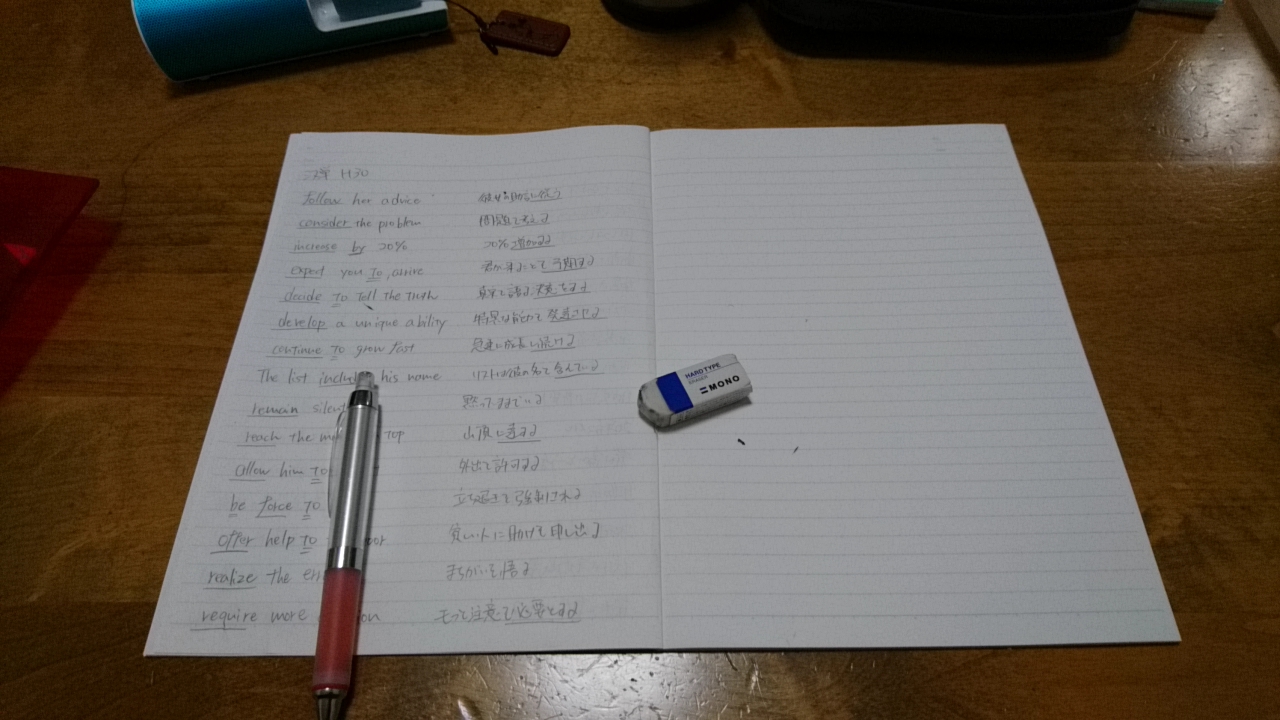 H30
follow her advice 彼女の助言に従う
consider the problem 問題を考える
increase by 20% 20%増加する
expect you to arrive 君が来ることを予期する
decide to tell the truth 真実を語る決意をする
develop a unique ability 特異な能力を発達させる
continue to grow fast 急速に成長し続ける
The list includ his name リストは彼の名を含んでいる
remain silent 黙ったままでいる
reach the m top 山頂に達する
allow him to 外出を許可する
be force to 立ち退きを強制される
offer help to oor 貧しい人に助けを申し出る
realize the err まちがいを悟る
require more on もっと注意を必要とする
HARD TYPE
ERASER
MONO